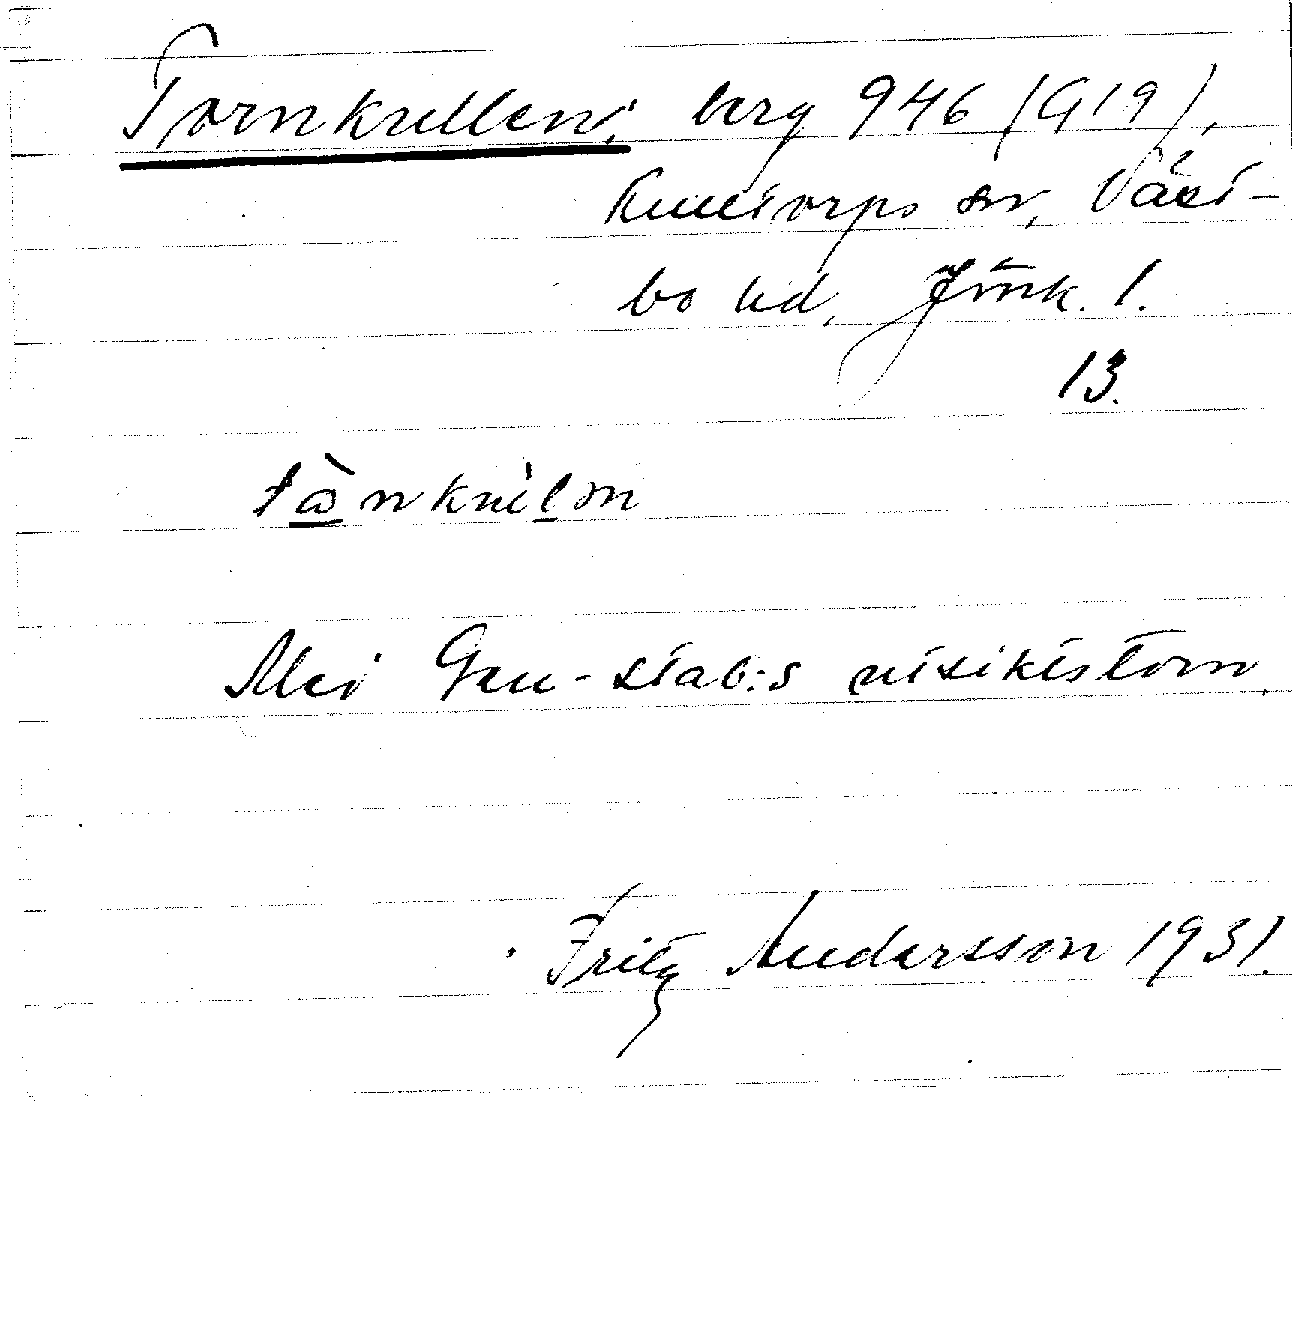 Tornkullen, berg 946 (G19),
Kulltorps sn, Väst-
bo hd, Jönk. l.
13.
tɷ̀nkúlən
Med Gen-stab:s utsiktstorn.
Fritz Andersson 1931.